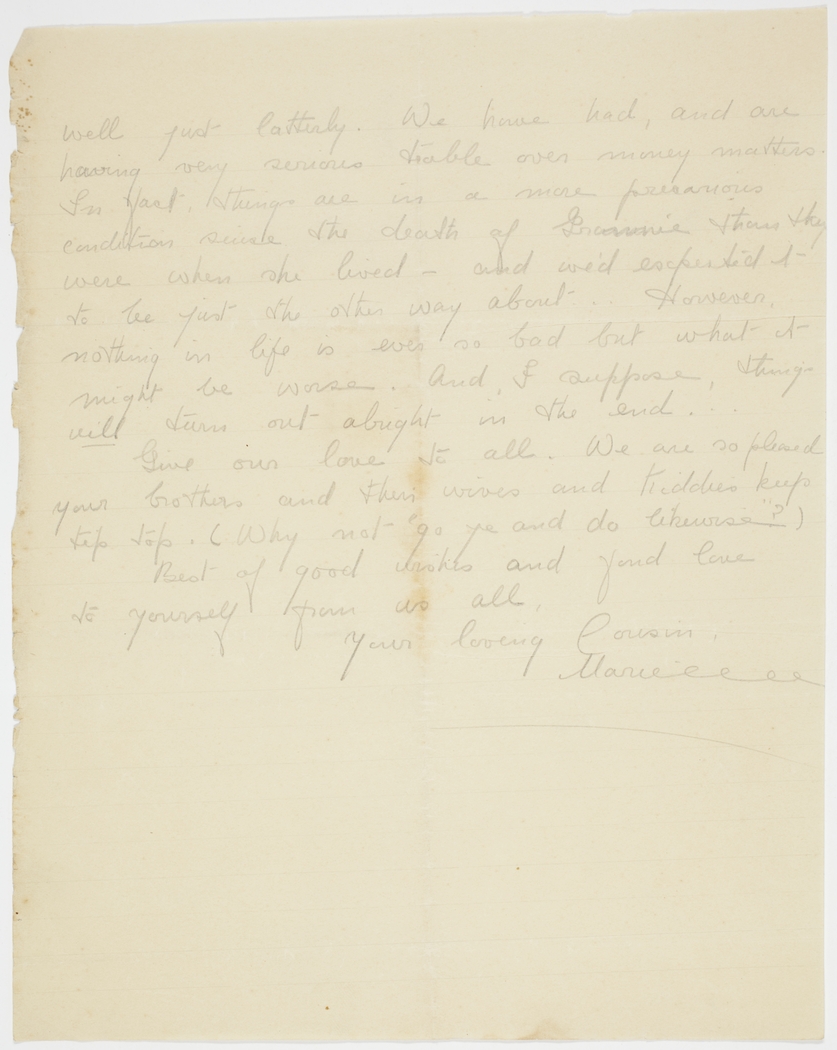 well just latterly. We have had, and are
having very serious trouble over money matters.
In fact, things are in a more precarious
condition since the death of Grannie than they
were when she lived – and we'd expected it
to be just the other way about... However,
nothing in life is ever so bad but what it
might be worse. And, I suppose, things
will turn out alright in the end...
Give our love to all. We are so pleased
your brothers and their wives and kiddies keep
tip top. (Why not "go ye and do likewise"?)
Best of good wishes and fond love
to yourself from us all,
Your loving Cousin,
Marie